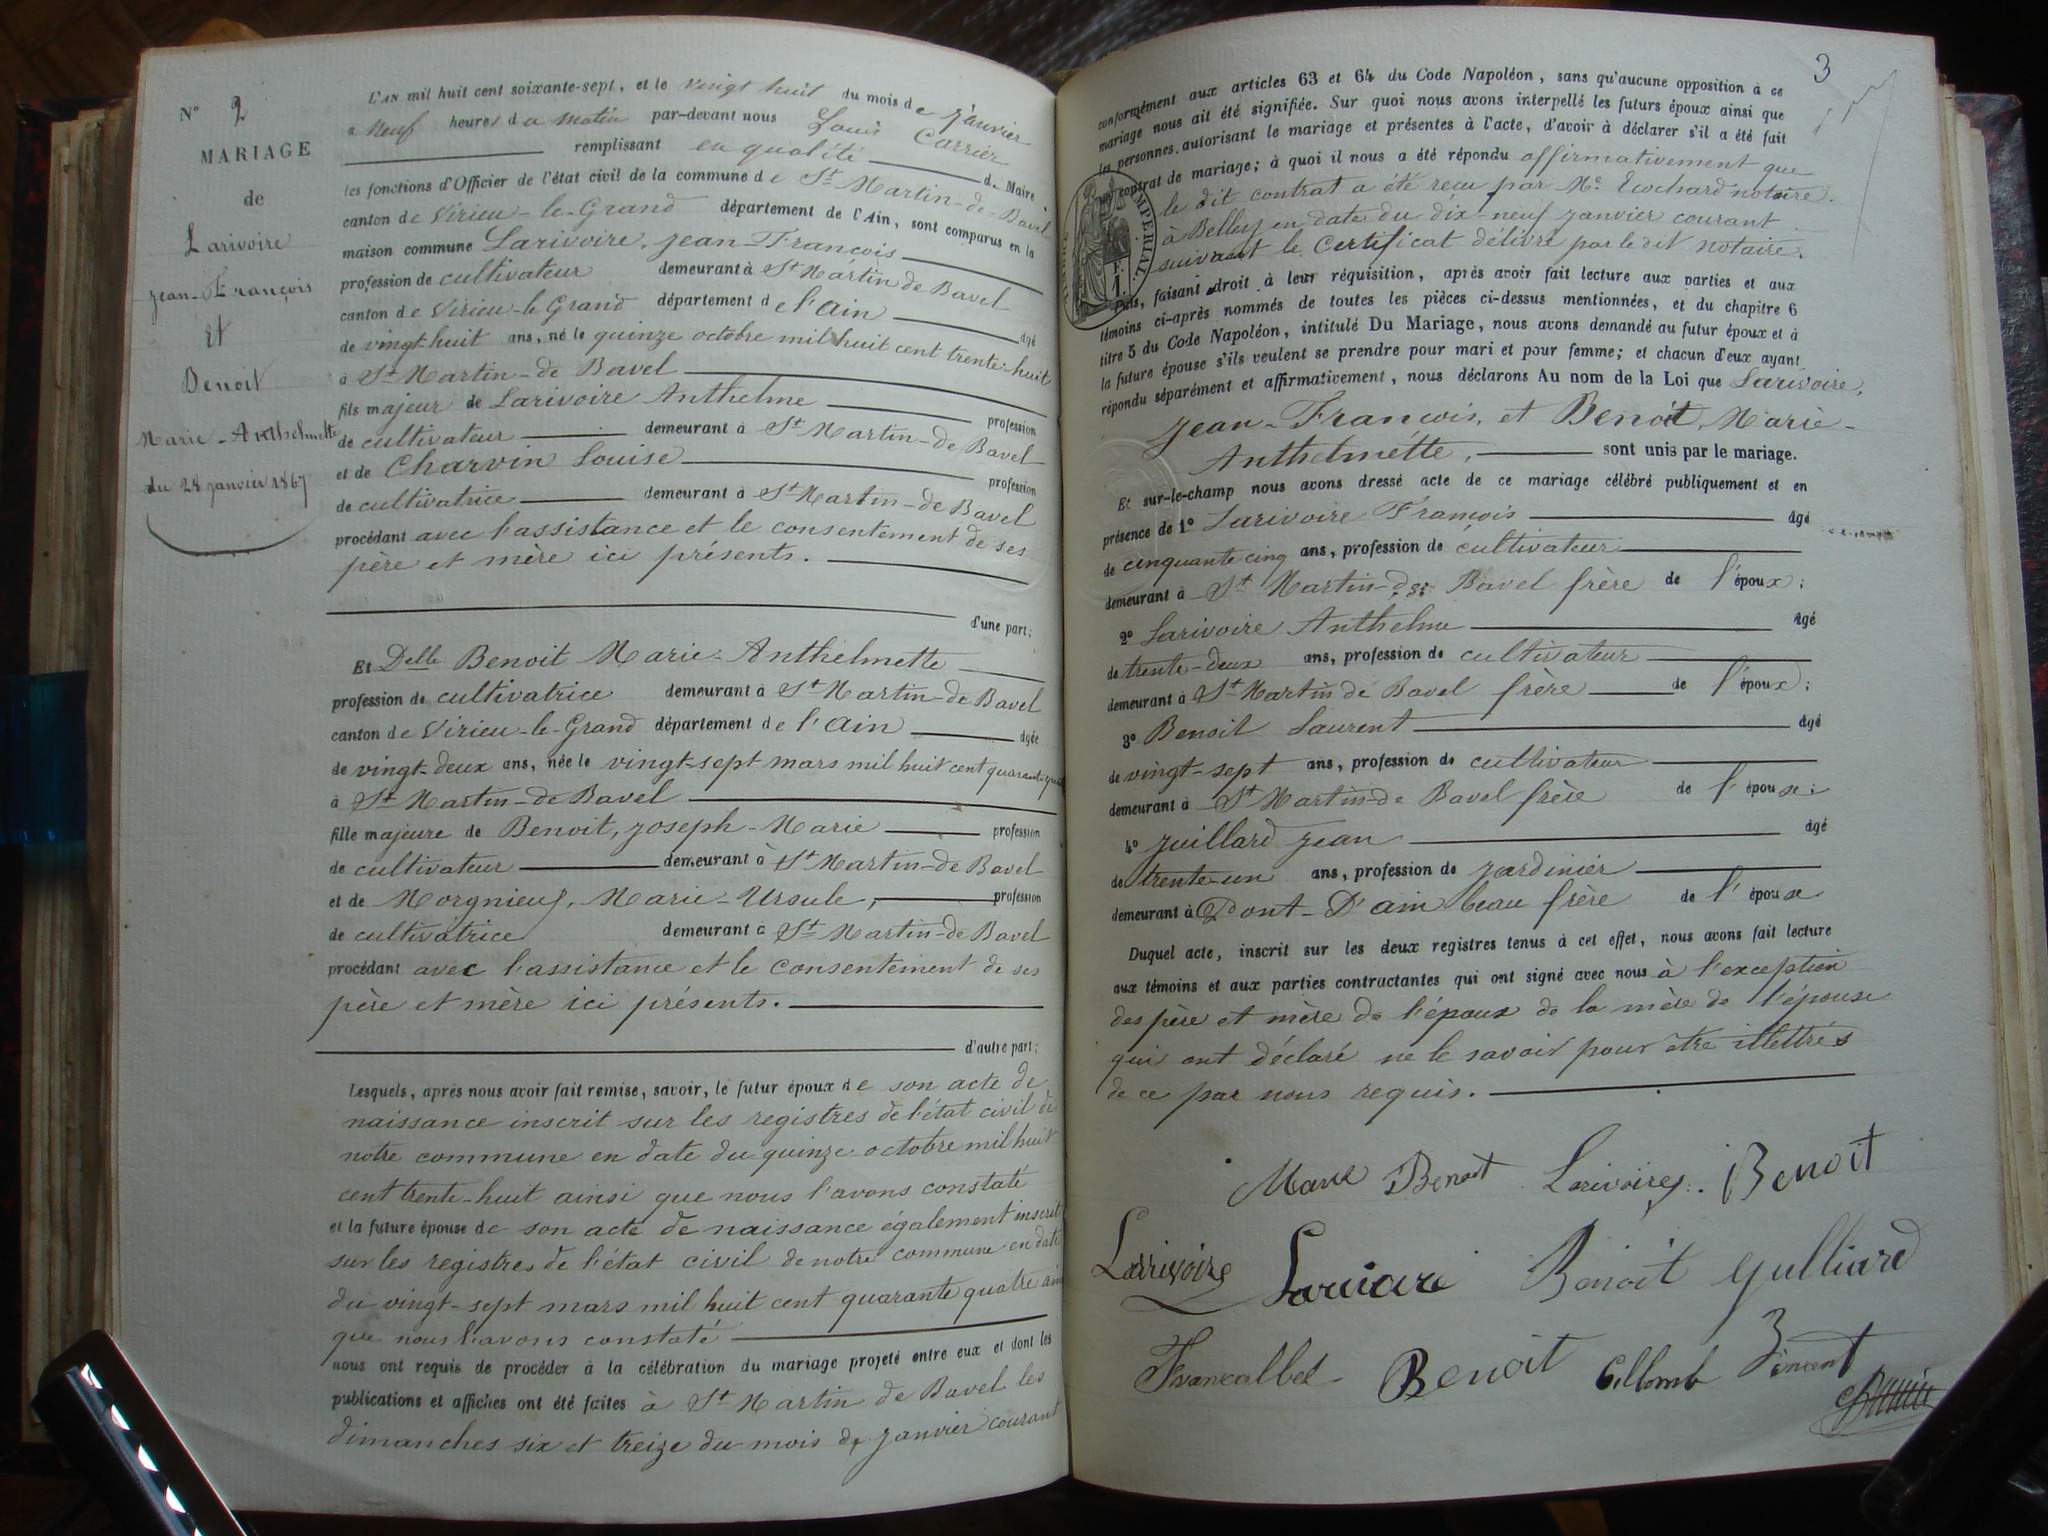 N° 2
MARIAGE
de
Larivoire
Jean-François
Et
Benoit
Marie-Anthelmette
du 28 janvier 1867
L'AN mil huit cent soixante-sept, et le vingt huit du mois de janvier
à Neuf heures du matin par-devant nous Louis Carrier
remplissant en qualité de Maire
les fonctions d'Officier de l'état civil de la commune de St Martin-de-Bavel
canton de Virieu-le-Grand département de l'Ain, sont comparus en la
maison commune Larivoire, Jean-François
profession de cultivateur demeurant à St Martin de Bavel
canton de Virieu-le-Grand département de l'Ain âgé
de vingt-huit ans, né le quinze octobre mil huit cent trente-huit
à St Martin-de Bavel
fils majeur de Larivoire Anthelme profession
de cultivateur demeurant à St Martin-de Bavel
et de Charvin Louise profession
de cultivatrice demeurant à St Martin-de Bavel
procédant avec l'assistance et le consentement de ses
père et mère ici présents.
d'une part;
Et Delle Benoit Marie-Anthelmette
profession de cultivatrice demeurant à St Martin-de Bavel
canton de Virieu-le-Grand département de l'Ain âgée
de vingt-deux ans, née le vingt-sept mars mil huit cent quarante-quatre
à St Martin-de Bavel
fille majeure de Benoit, Joseph-Marie profession
de cultivateur demeurant à St Martin-de Bavel
et de Morgnieux, Marie-Ursule, profession
de cultivatrice demeurant à St Martin-de Bavel
procédant avec l'assistance et le consentement de ses
père et mère ici présents.
d'autre part;
Lesquels, après nous avoir fait remise, savoir, le futur époux de son acte de
naissance inscrit sur les registres de l'état civil de
notre commune en date du quinze octobre mil huit
cent trente-huit ainsi que nous l'avons constaté
et la future épouse de son acte de naissance également inscrit
sur les registres de l'état civil de notre commune en date
du vingt-sept mars mil huit cent quarante quatre ainsi
que nous l'avons constaté
nous ont requis de procéder à la célébration du mariage projeté entre eux et dont les
publications et affiches ont été faites à St Martin de Bavel les
dimanches six et treize du mois de janvier courant
3
conformément aux articles 63 et 64 du Code Napoléon, sans qu'aucune opposition à ce
mariage nous ait été signifiée. Sur quoi nous avons interpellé les futurs époux ainsi que
les personnes autorisant le mariage et présentes à l'acte, d'avoir à déclarer s'il a été fait
un contrat de mariage; à quoi il nous a été répondu affirmativement que
le dit contrat a été reçu par Me notaire
à Belley en date du dix-neuf janvier courant
suivant le certificat délivré par le dit notaire.
IMPERIAL
Puis, faisant droit à leur réquisition, après avoir fait lecture aux parties et aux
témoins ci-après nommés de toutes les pièces ci-dessus mentionnées, et du chapitre 6
titre 5 du Code Napoléon, intitulé Du Mariage, nous avons demandé au futur époux et à
la future épouse s'ils veulent se prendre pour mari et pour femme; et chacun d'eux ayant
répondu séparément et affirmativement, nous déclarons Au nom de la Loi que Larivoire,
Jean-François, et Benoit, Marie-
Anthelmette, sont unis par le mariage.
Et sur-le-champ nous avons dressé acte de ce mariage célébré publiquement et en
présence de 1° Larivoire François âgé
de cinquante cinq ans, profession de cultivateur
demeurant à St Martin-de Bavel frère de l'époux;
2° Larivoire Anthelme âgé
de trente-deux ans, profession de cultivateur
demeurant à St Martin de Bavel frère de l'époux;
3° Benoit Laurent âgé
de vingt-sept ans, profession de cultivateur
demeurant à St Martin-de Bavel frère de l'épouse;
4° Juillard Jean âgé
de trente-un ans, profession de jardinier
demeurant à Pont-D'ain beau frère de l'épouse
Duquel acte, inscrit sur les deux registres tenus à cet effet, nous avons fait lecture
aux témoins et aux parties contractantes qui ont signé avec nous à l'exception
des père et mère de l'époux de la mère de l'épouse
qui ont déclaré ne le savoir pour être illettrés
de ce par nous requis.
Marie Benoit Larivoire Benoit
Larrivoire Benoit Gulliard
Benoit Collomb Vincent